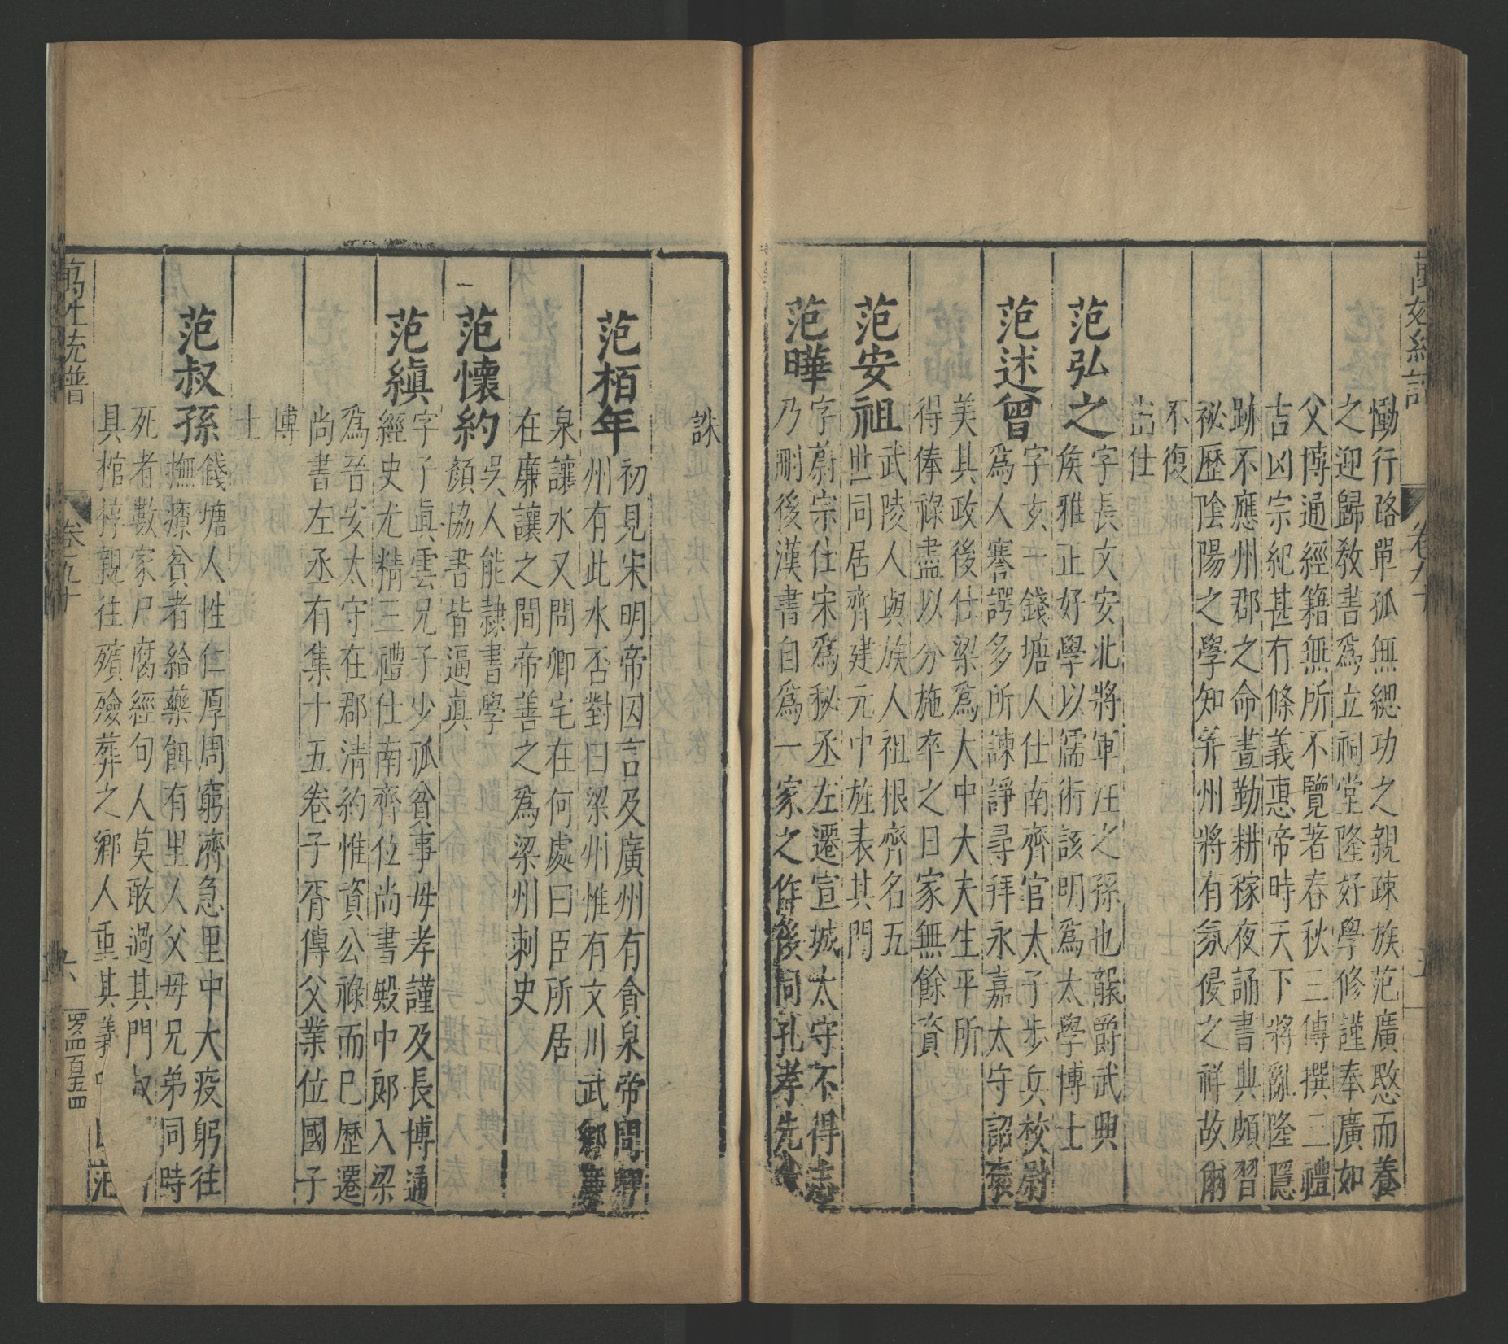 慟行路單孤無緦功之親疎族范廣愍而養
之迎歸教書爲立祠堂隆好學修謹奉廣如
父博通經籍無所不覽著春秋三傳撰三禮
吉凶宗紀甚有條義惠帝時天下將亂隆隱
跡不應州郡之命晝勤耕稼夜誦書典頗習
祕歷陰陽之學知并州將有氛侵之祥故爾
不復
出仕
范弘之
字長文安北將軍汪之孫也襲爵武興
矦雅正好學以儒術該明爲太學博士
范述曾
字子玄錢塘人仕南齊官太子步兵校尉
爲人謇諤多所諫諍尋拜永嘉太守詔褒
美其政後仕梁爲大中大夫生平所
得俸祿盡以分施卒之日家無餘資
范安祖
武陵人與族人祖根齊名五
世同居齊建元中旌表其門
范曄
字蔚宗仕宋爲秘丞左遷宣城太守不得志
乃刪後漢書自爲一家之作後同孔孝先
誅
范栢年
初見宋明帝因言及廣州有貪泉帝問卿
州有此水否對曰梁州惟有文川武鄉廉
泉讓水又問卿宅在何處曰臣所居
在廉讓之間帝善之爲梁州刺史
范懷約
吳人能隷書學
顏協書皆逼眞
范縝
字子眞雲兄子少孤貧事母孝謹及長博通
經史尤精三禮仕南齊位尚書殿中郎入梁
爲晉安太守在郡清約惟資公祿而已歷遷
尚書左丞有集十五卷子胥傳父業位國子
博
士
范叔孫
錢塘人性仁厚周窮濟急里中大疫躬往
撫療貧者給藥餌有里人父母兄弟同時
死者數家尸腐經旬人莫敢過其門叔
具棺槥親往殯殮葬之鄉人重其義
萬姓統譜
卷九十
六